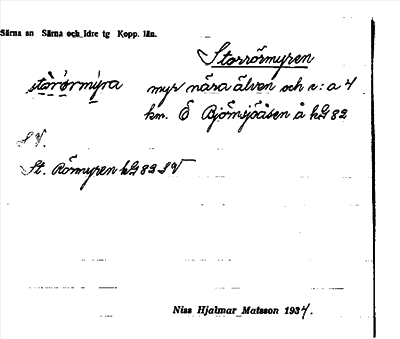 Särna sn Särna och Idre tg Kopp. län.
Storrörmyren
stòrrörmýra myr nära älven och c:a 4
km. Ö Björnsjöåsen å kG 82
S V.
St. Römyren kG 82 SV
Niss Hjalmar Matsson 1934.